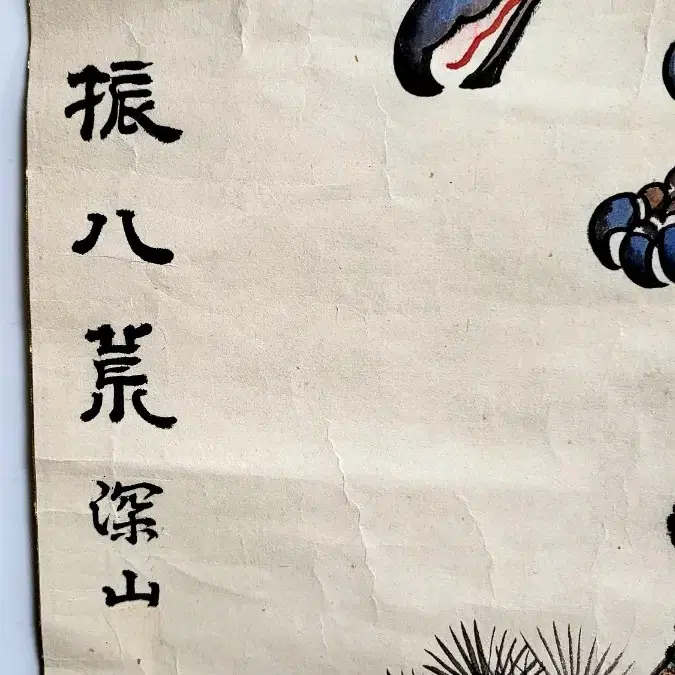 振八荒
深山